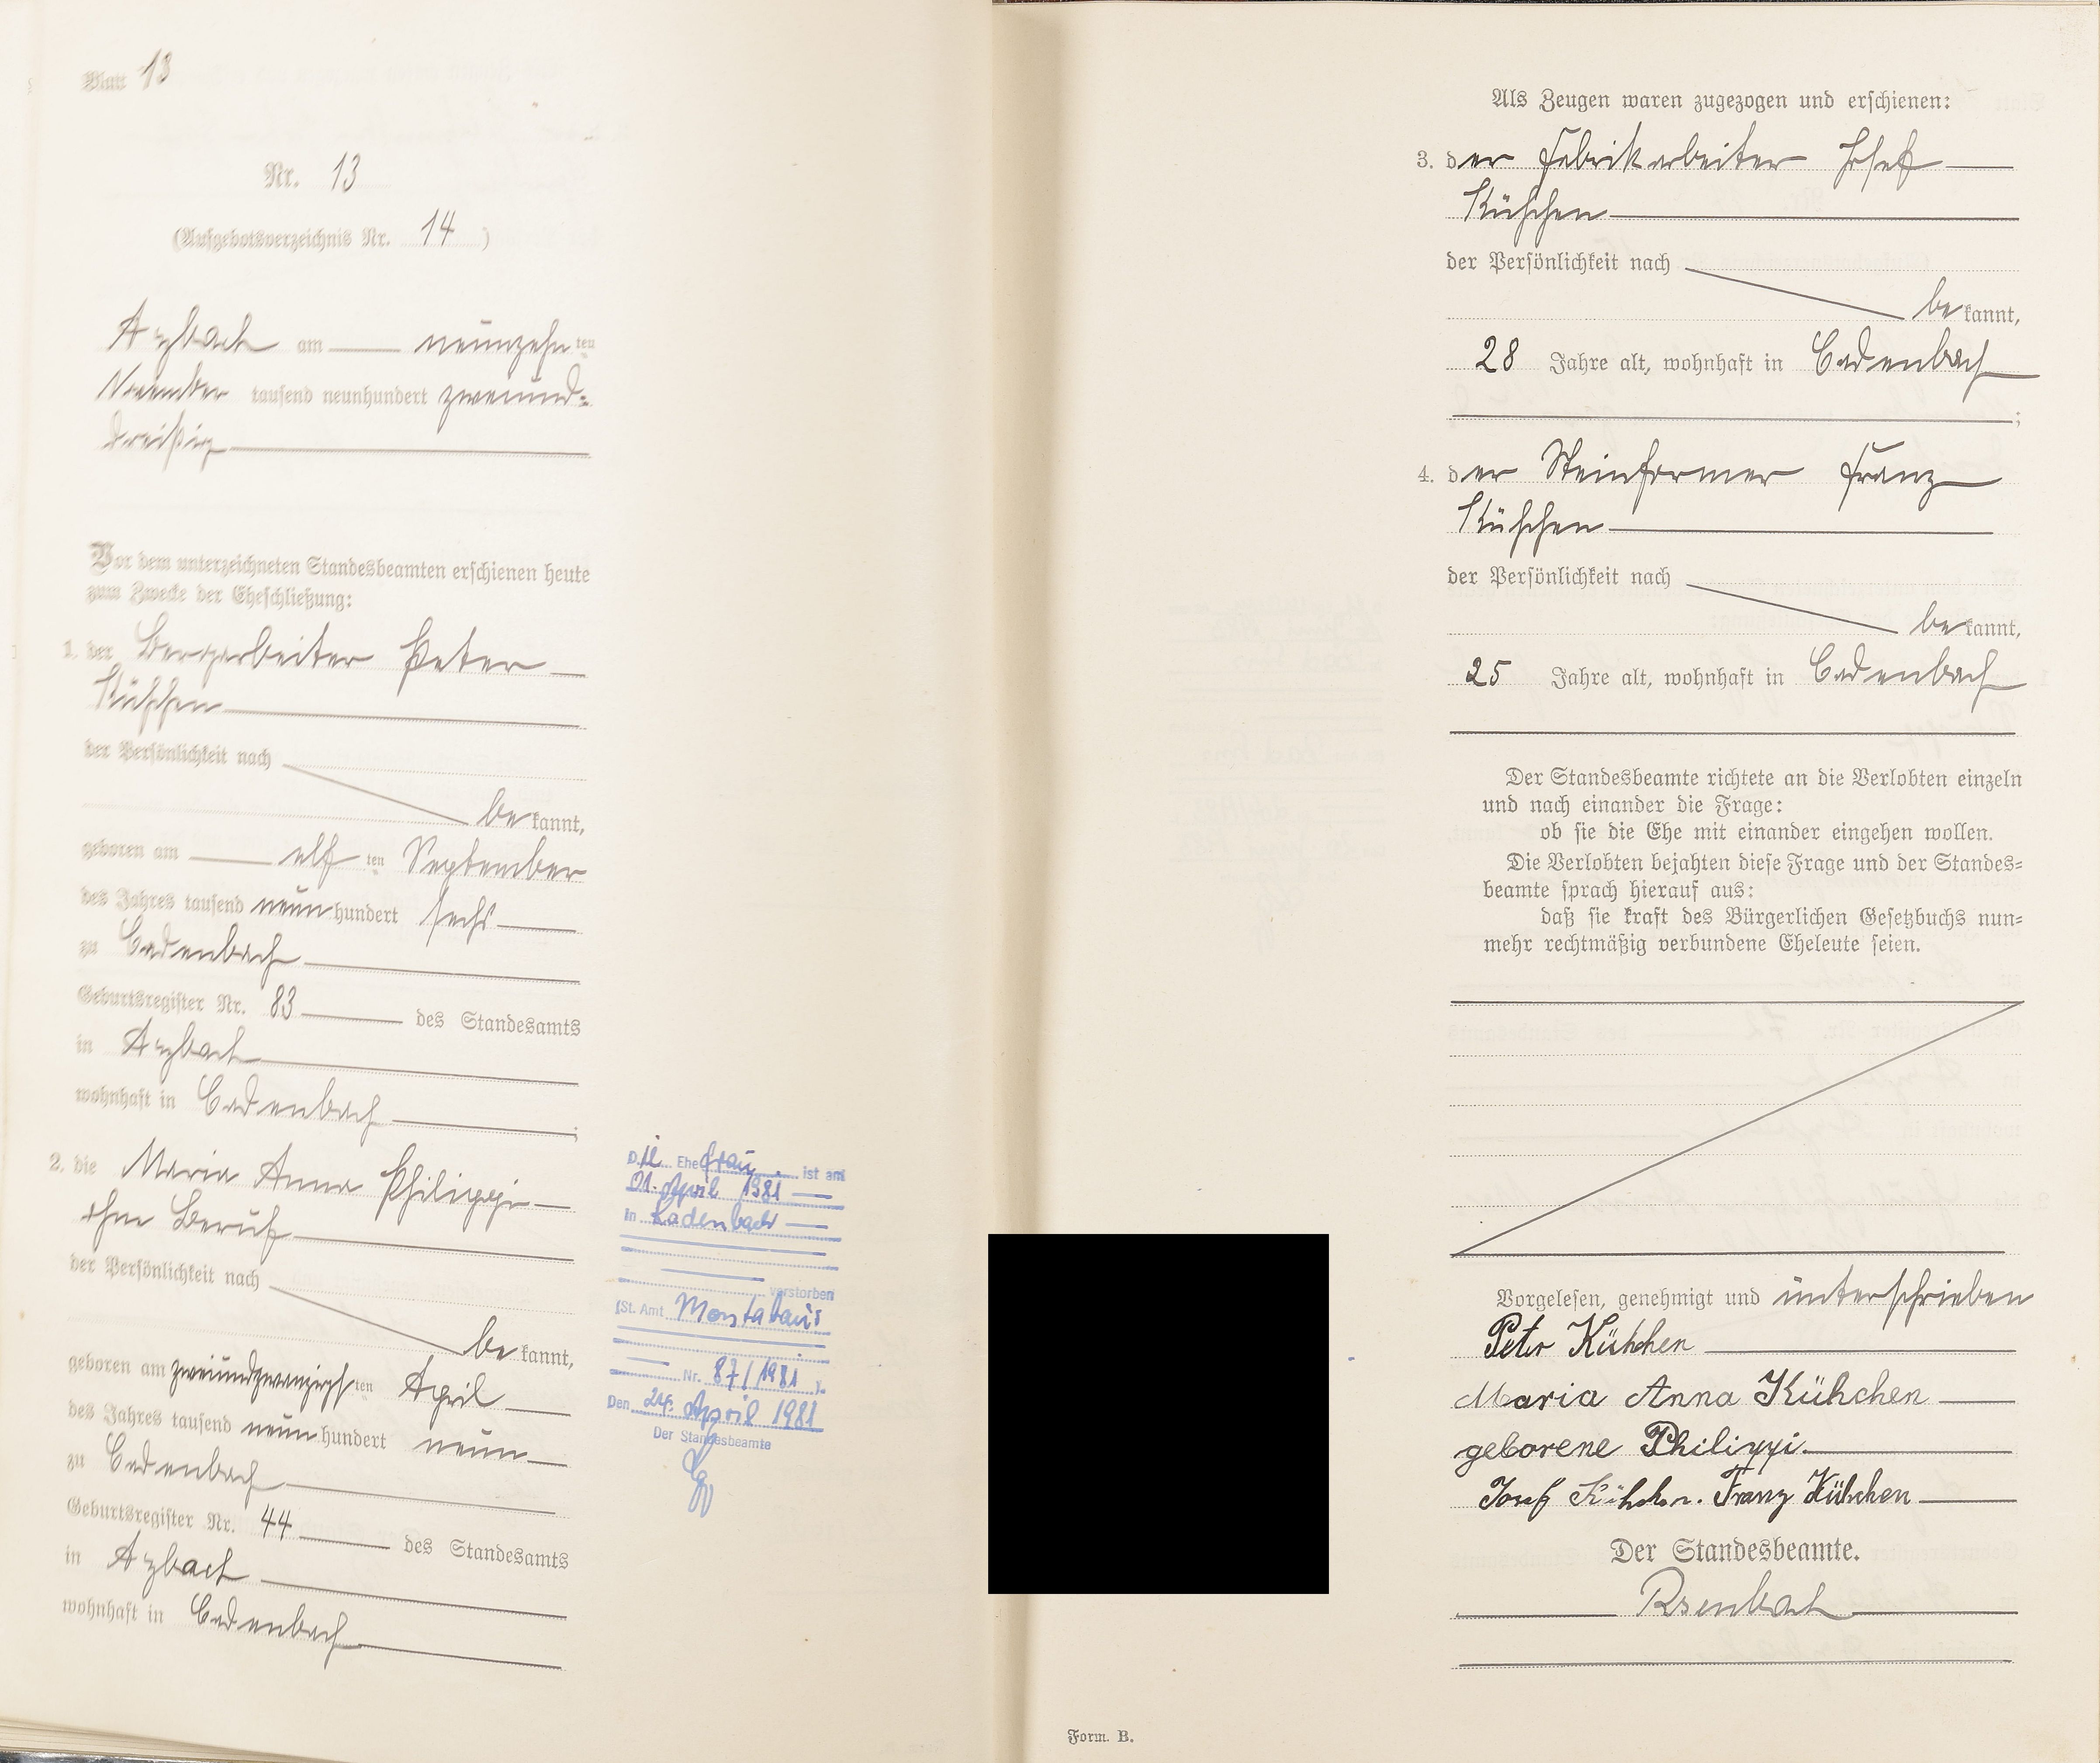 Blatt 13
Nr. 13
(Aufgebotsverzeichnis Nr. 14)
Arzbach am neunzehnten
November tausend neunhundert zweiund-
dreißig
Vor dem unterzeichneten Standesbeamten erschienen heute
zum Zwecke der Eheschließung:
1. der Bergarbeiter Peter
Kühchen
der Persönlichkeit nach
bekannt,
geboren am elften September
des Jahres tausend neunhundert sechs
zu Cadenbach
Geburtsregister Nr. 83 des Standesamts
in Arzbach
wohnhaft in Cadenbach;
2. die Maria Anna Philippi
ohne Beruf
der Persönlichkeit nach
bekannt,
geboren am zweiundzwanzigsten April
des Jahres tausend neunhundert neun
zu Cadenbach
Geburtsregister Nr. 44 des Standesamts
in Arzbach
wohnhaft in Cadenbach
Die Ehefrau ist am
21. April 1981
in Kadenbach
verstorben
(St. Amt Montabaur
Nr. 87/1981).
Den 24. April 1981
Der Standesbeamte
Als Zeugen waren zugezogen und erschienen:
3. der Fabrikarbeiter Josef
Kühchen
der Persönlichkeit nach
bekannt,
28 Jahre alt, wohnhaft in Cadenbach
;
4. der Steinformer Franz
Kühchen
der Persönlichkeit nach
bekannt,
25 Jahre alt, wohnhaft in Cadenbach
Der Standesbeamte richtete an die Verlobten einzeln
und nach einander die Frage:
ob sie die Ehe mit einander eingehen wollen.
Die Verlobten bejahten diese Frage und der Standes-
beamte sprach hierauf aus:
daß sie kraft des Bürgerlichen Gesetzbuchs nun-
mehr rechtmäßig verbundene Eheleute seien.
Vorgelesen, genehmigt und unterschrieben
Peter Kühchen
Maria Anna Kühchen
geborene Philippi.
Josef Kühchen. Franz Kühchen
Der Standesbeamte.
Form. B.